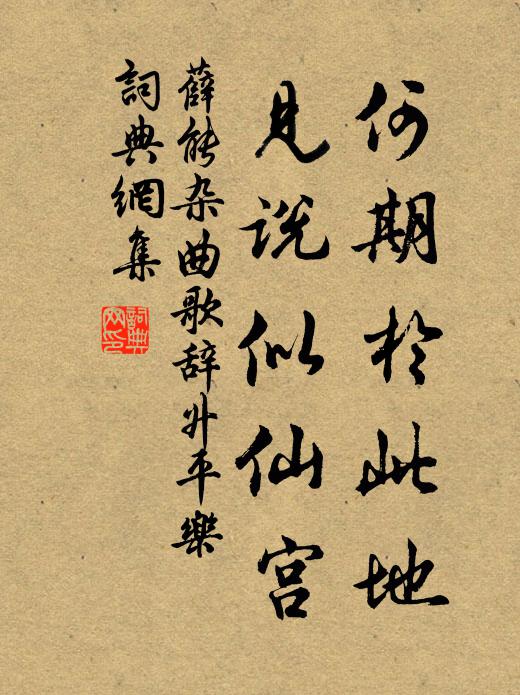 何期於此地
見説似仙宮
薛能杂曲歌辞升平樂
詞典網集
詞典网印